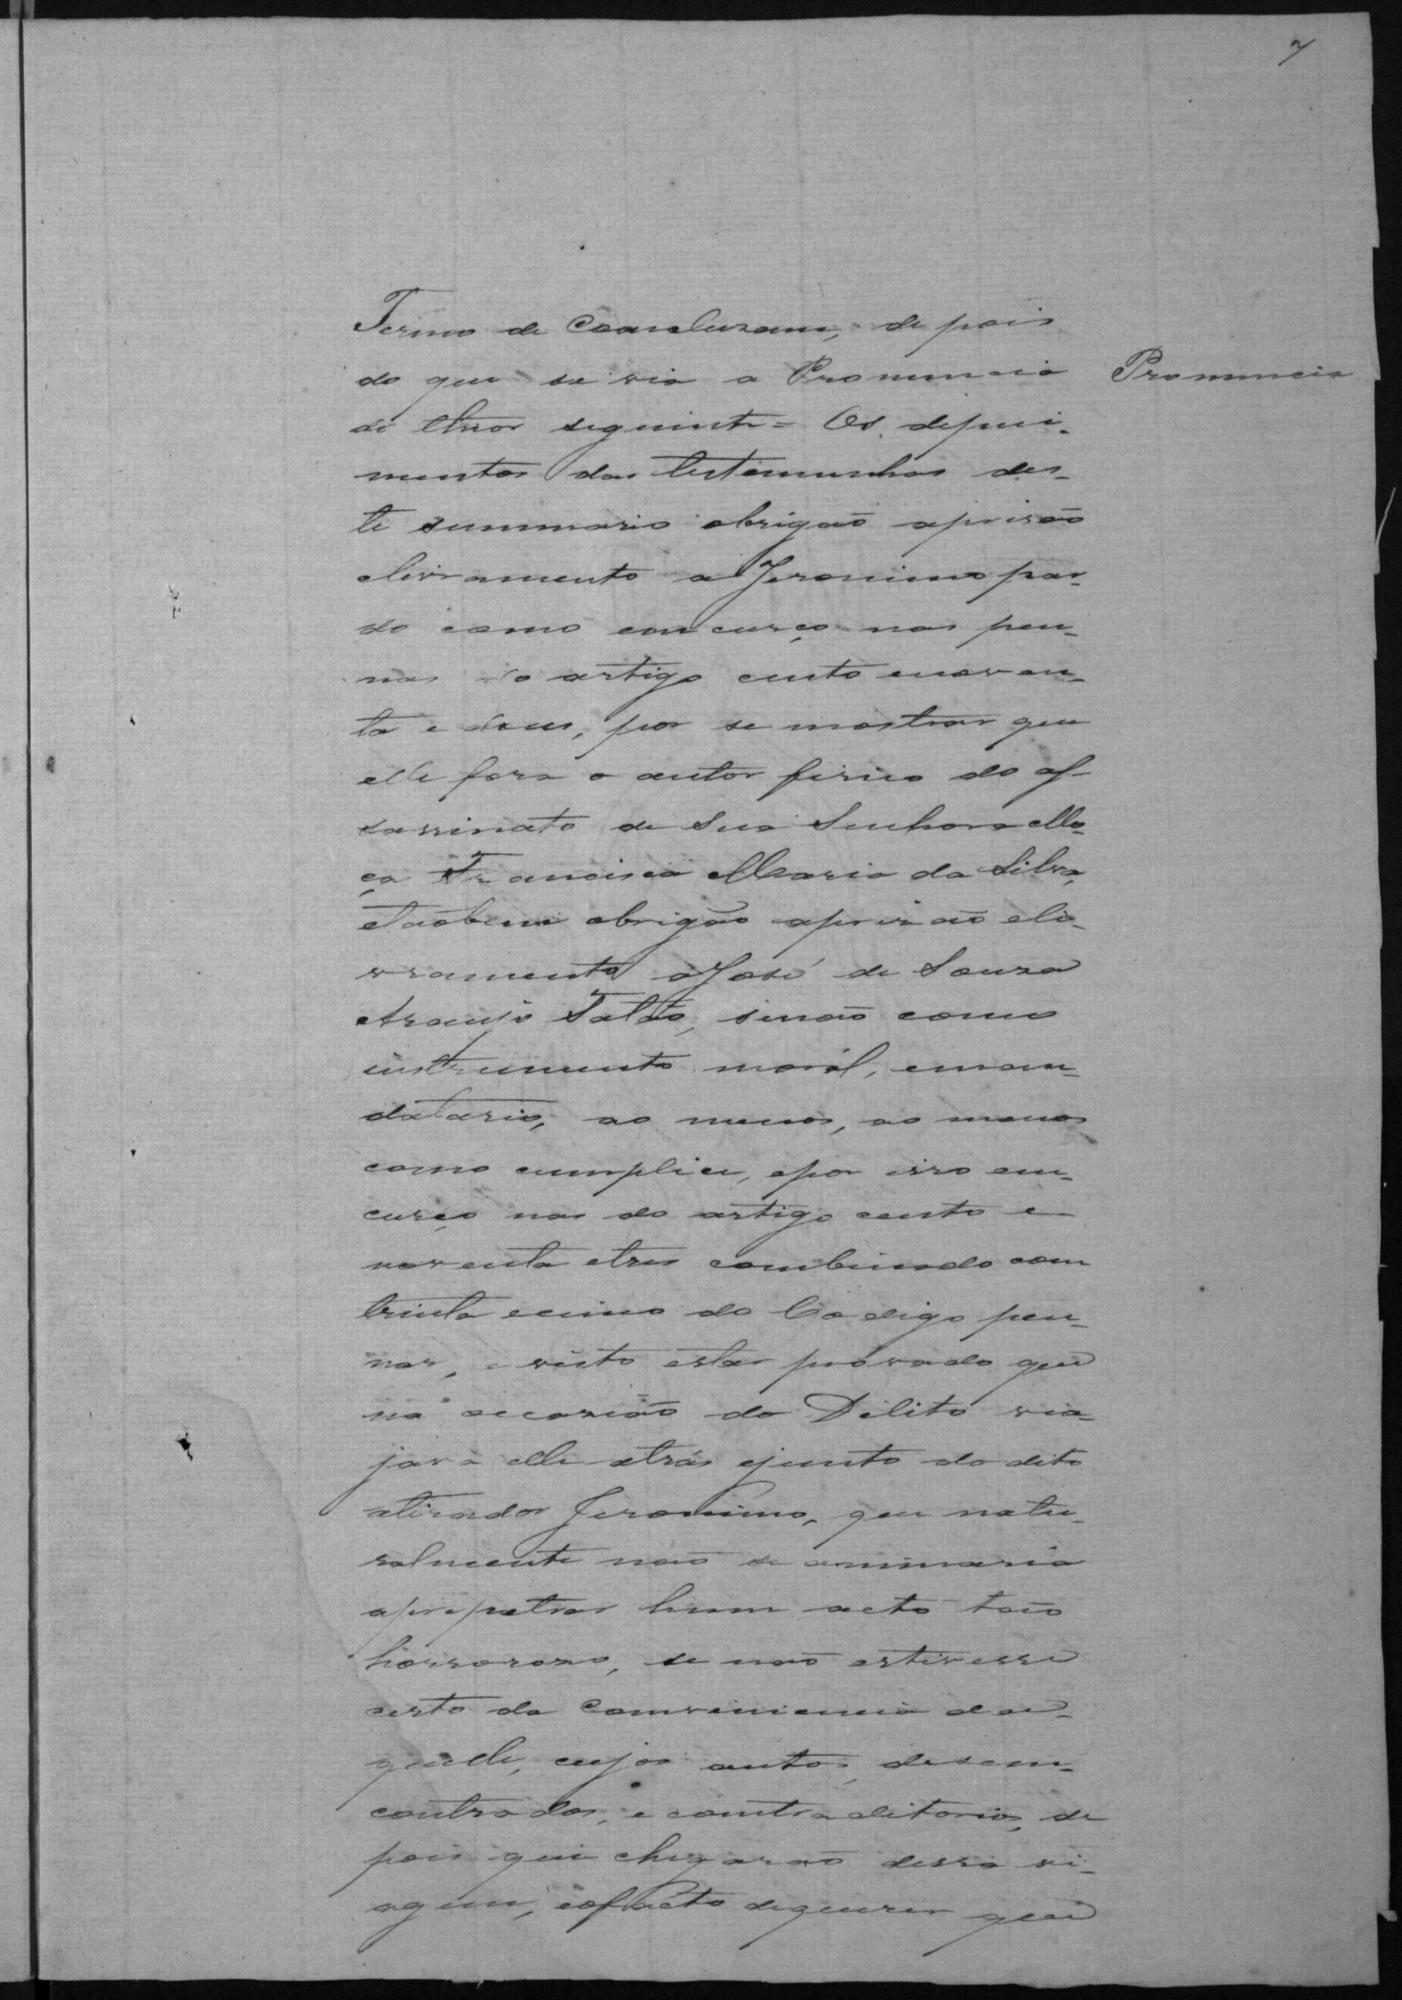 7
Termo de Concluzam, de pois
do que se via a Pronuncia
Pronuncia
de theor seguinte = Os depui-
mentos das testemunhas des-
te summario obrigaõ aprisaõ
elivramento a Jeronimo par-
do como em curço nas pen-
nas do artigo cento enoven-
ta e dous, por se mostrar que
elle fora o autor fizico do as-
sassinato de Sua Senhora Mo-
ça Francisca Maria da Silva,
etaõbem obrigaõ aprizaõ eli-
vramento aJosé de Souza
Araujo Fataõ, senaõ como
instrumento moral, eman-
datario, ao menos, ao menos
como cumplice, epor isso em-
curço nas do artigo cento e
noventa etres combinado com
trinta ecinco do Codigo pen-
nar, e visto estar provado que
na occaziaõ do Dilito via-
java elle atrás ejunto do dito
atirador Jeronimo, que natu-
ralmente naõ se animaria
aprepetrar hum acto taõ
horrorozo, se naõ estivesse
certo da conveniencia da-
quelle, cujos autos desem-
contrados, e contraditorios, de
pois que chegaraõ dessa vi-
agem, eofacto dequerer que